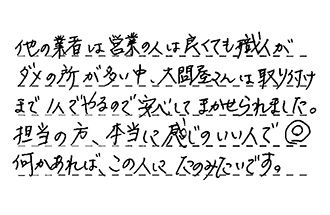 他の業者は営業の人は良くても職人が
ダメの所が多い中、大問屋さんは取り付け
まで1人でやるので安心してまかせられました。
担当の方、本当に感じのいい人で◎
何かあれば、この人にたのみたいです。